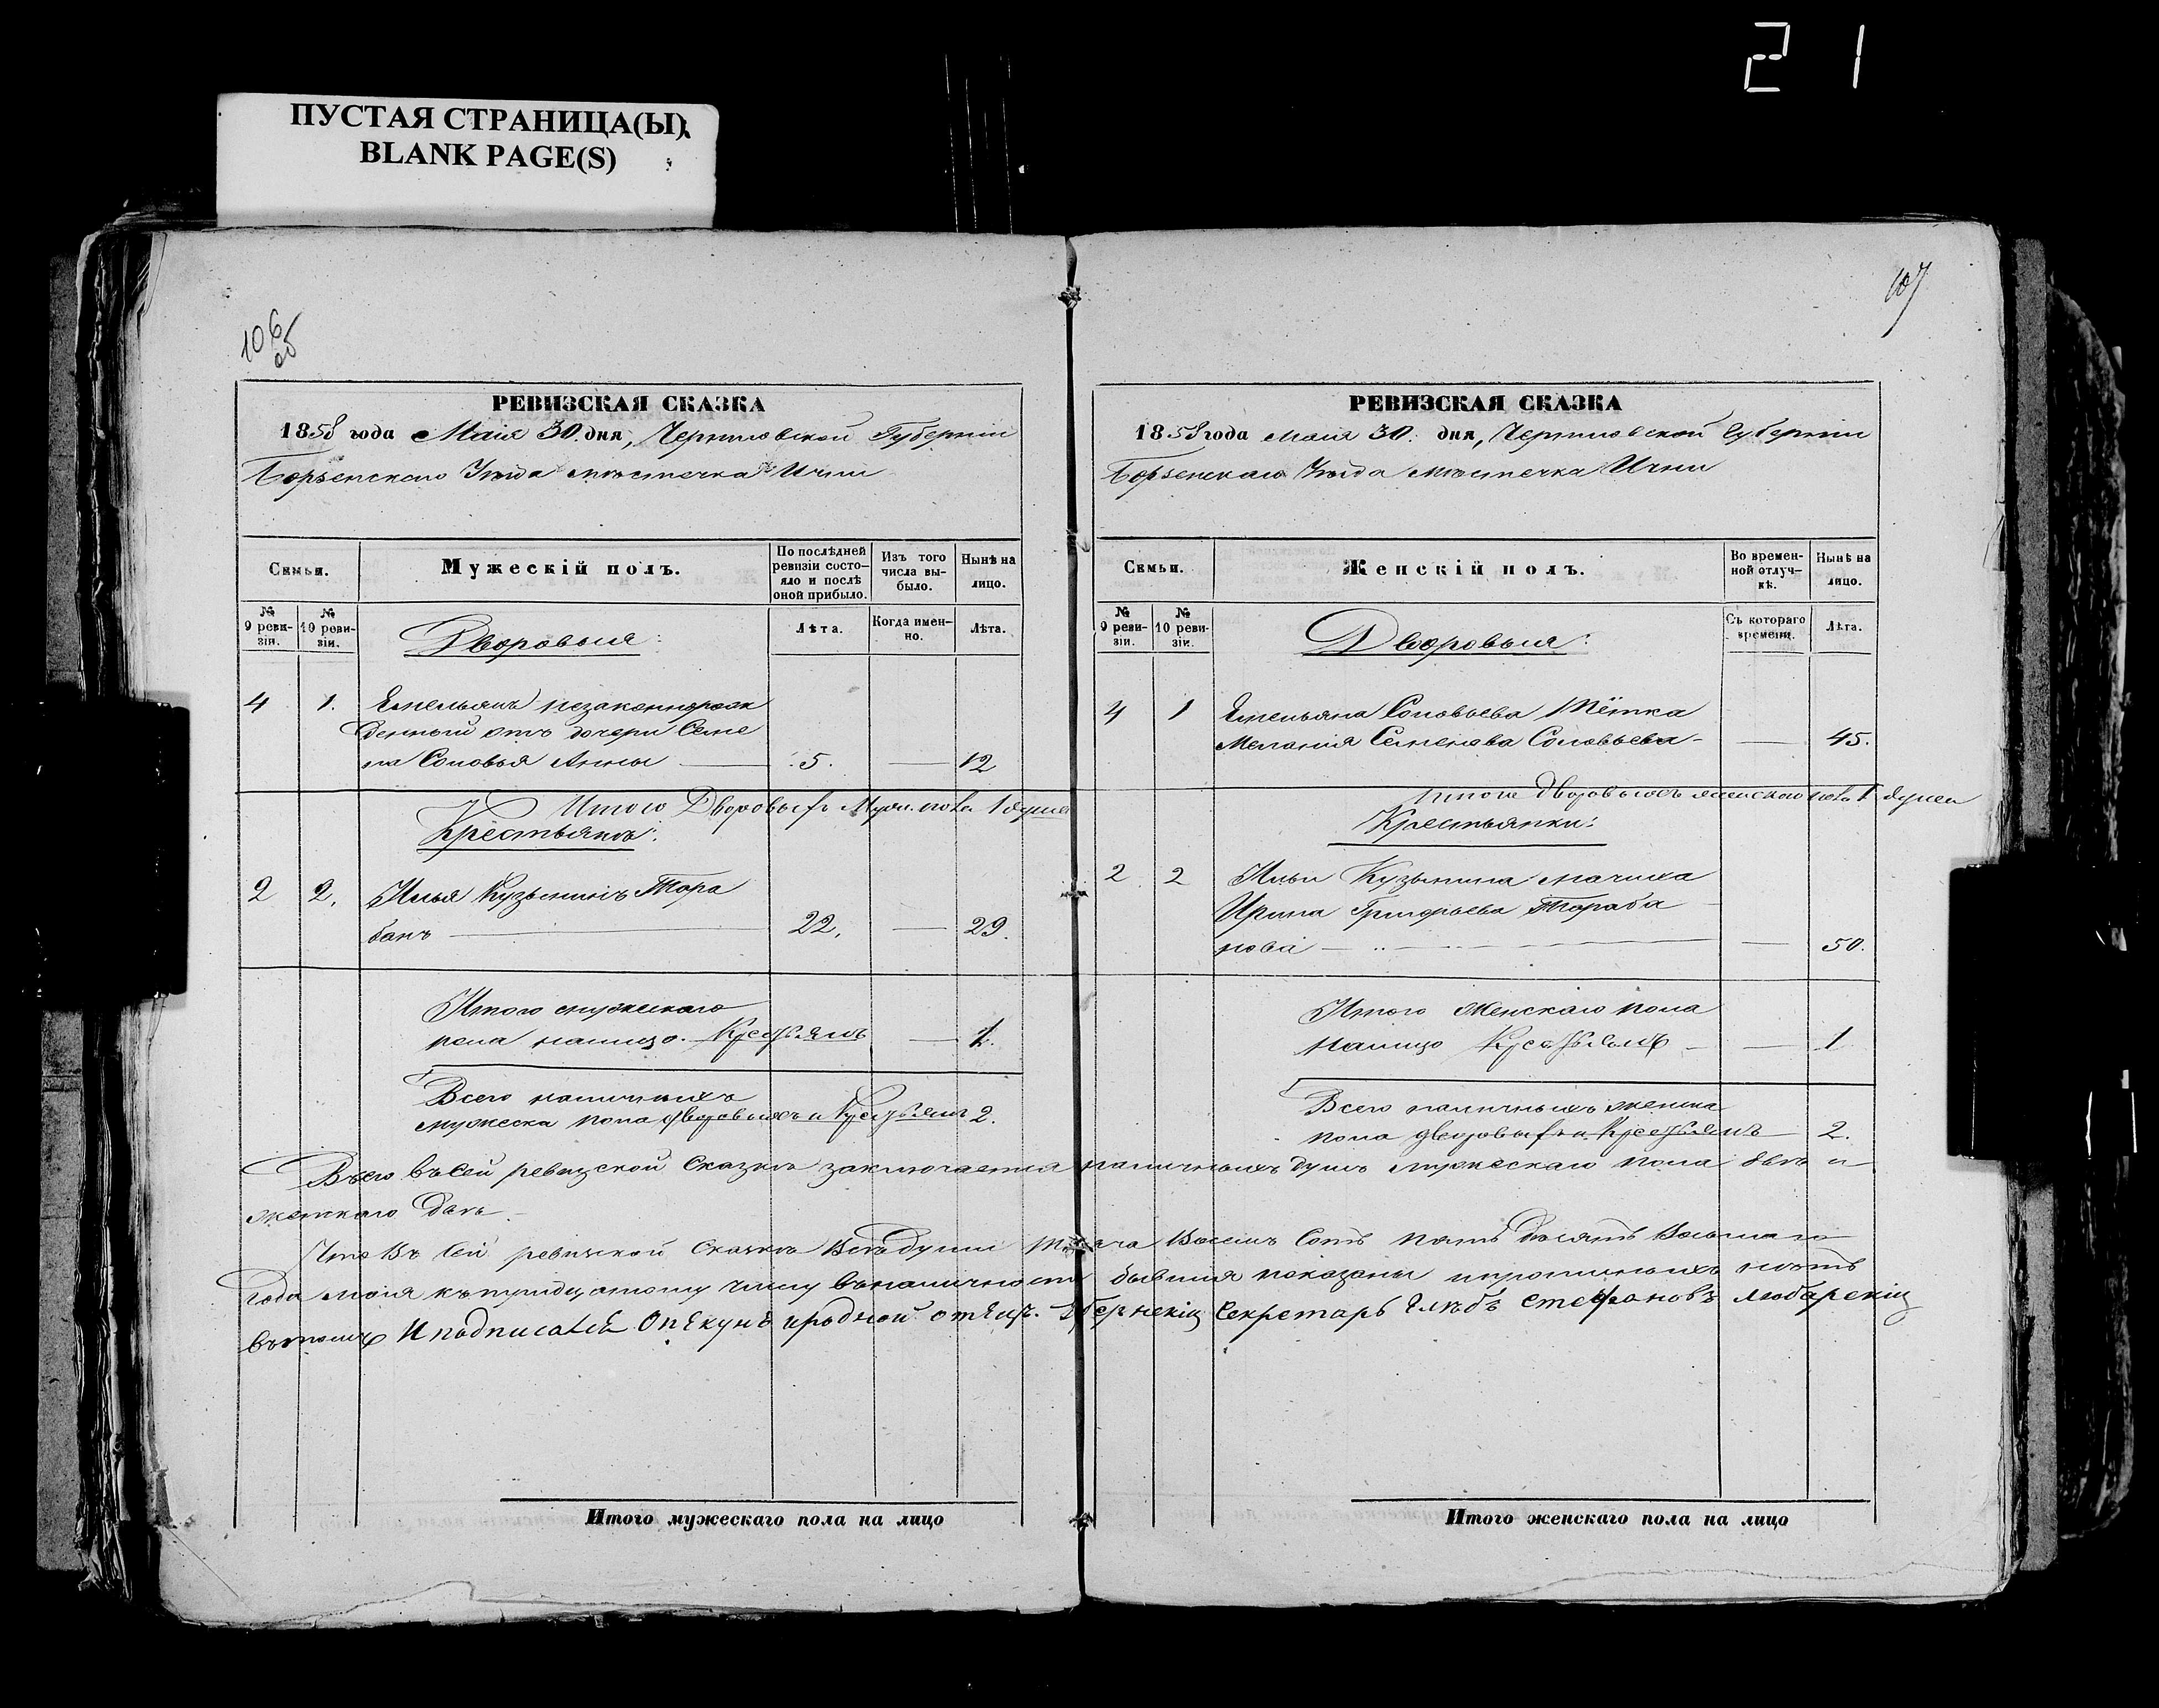 21
ПУСТАЯ СТРАНИЦА(Ы)
BLANK PAGE(S)
106
об
РЕВИЗСКАЯ СКАЗКА
1858 года Маія 30. дня, Черниговской Губерніи
Борзенскаго Уѣзда мѣстечка Ични
Семьи.
Мужескій полъ.
По послѣдней ревизіи состояло и послѣ оной прибыло.
Изъ того числа выбыло.
Нынѣ на лицо.
№ 9 ревизіи.
№ 10 ревизіи.
Дворовыя:
Лѣта.
Когда именно.
Лѣта.
4 1. Емельянъ незаконнорож
денный отъ дочери Семе
на Соловья Анны — 5. — 12
Итого Дворовыхъ Муж. пола 1 душа
Крестьянъ:
2 2. Илья Кузьминъ Тора
банъ — 22. — 29.
Итого мужескаго
пола налицо. Крестьянъ — 1.
Всего наличныхъ
мужеска пола дворовыхъ и Крестьянъ 2.
107
РЕВИЗСКАЯ СКАЗКА
1858 года Маія 30. дня, Черниговской Губерніи
Борзенскаго Уѣзда мѣстечка Ични
Семьи.
Женскій полъ.
Во временной отлучкѣ.
Нынѣ на лицо.
№ 9 ревизіи.
№ 10 ревизіи.
Дворовыя:
Съ котораго времени.
Лѣта.
4 1 Емельяна Соловьева тётка
Меланія Семенова Соловьева — — 45.
Итого дворовыхъ женскаго пола 1 душа
Крестьянки:
2 2 Ильи Кузьмина мачиха
Ирина Григорьева Тораба
нова — — 50.
Итого Женскаго пола
налицо Крестьянъ — — 1
Всего наличныхъ женска
пола дворовыхъ и Крестьянъ — 2.
Всего въ сей ревизской Сказкѣ заключается наличныхъ душъ мужескаго пола двѣ и
женскаго двѣ.
Что Въ Сей ревизской Сказкѣ Всѣ души тысяча Восемь Сотъ пять десятъ Восьмаго
Года маія къ тридцатому числу въ наличности бывшія показаны и прописныхъ нѣтъ
въ томъ И подписался Опекунъ и родной отецъ. Губернскій Секретарь Глѣбъ Стефановъ Любарскій
Итого мужескаго пола на лицо
Итого женскаго пола на лицо